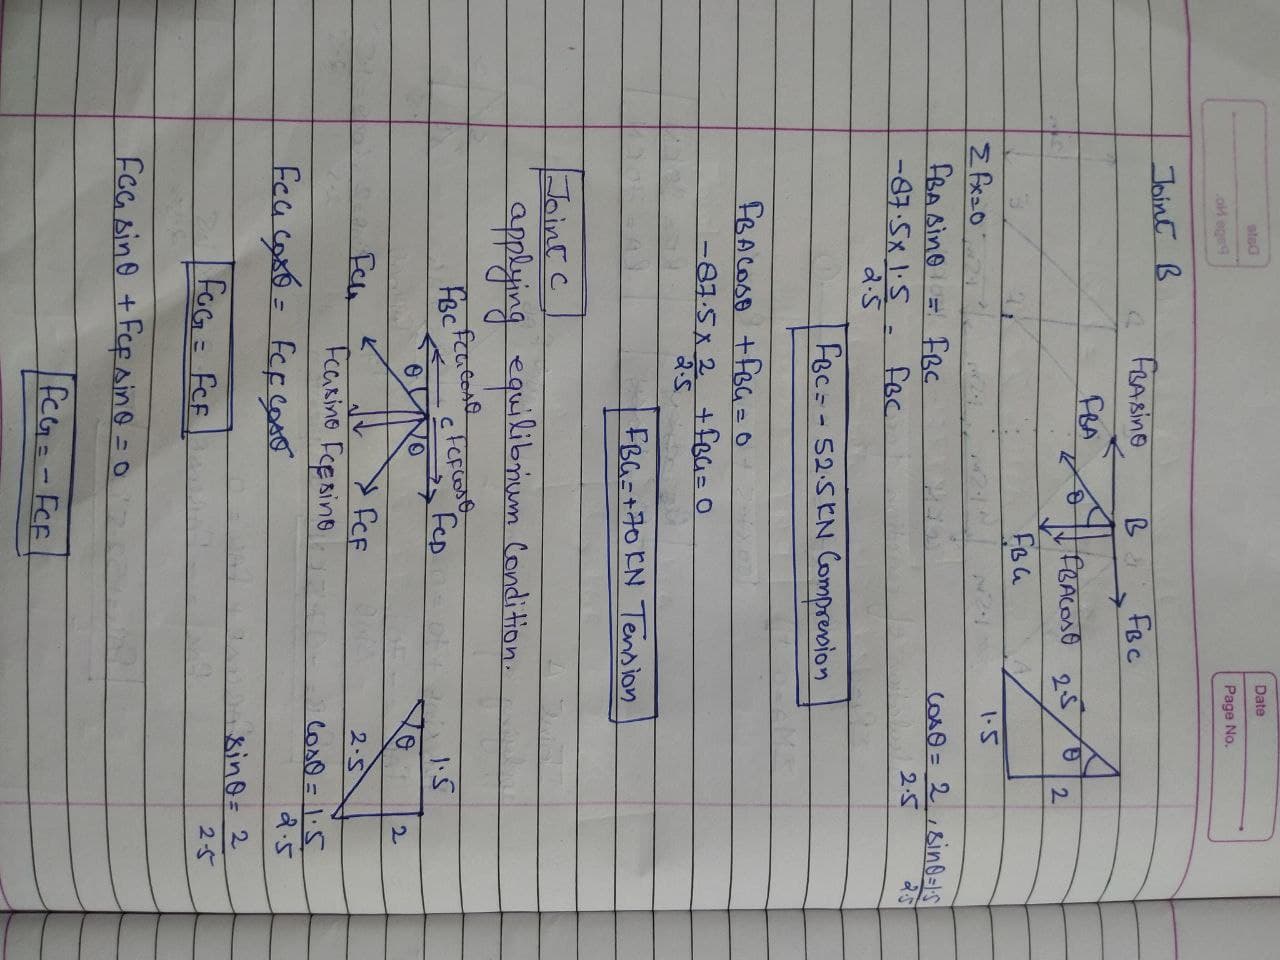 Date
Page No.
Joint B
FBA sinθ
B
FBC
FBA
θ
FBA cosθ
FBG
2.5
θ
1.5
2
Σfx=0
FBA sinθ = FBC
cosθ = 2/2.5, sinθ = 1.5/2.5
-87.5 × 1.5/2.5 = FBC
FBC = - 52.5 KN Compression
FBA cosθ + FBG = 0
-87.5 × 2/2.5 + FBG = 0
FBG = +70 KN Tension
Joint C
applying equilibrium Condition.
FBC FCG cosθ C FCF cosθ FCD
θ θ
FCG
FCF
FCG sinθ FCF sinθ
1.5
θ
2.5
2
cosθ = 1.5/2.5
FCG cosθ = FCF cosθ
sinθ = 2/2.5
FCG = FCF
FCG sinθ + FCF sinθ = 0
FCG = - FCF